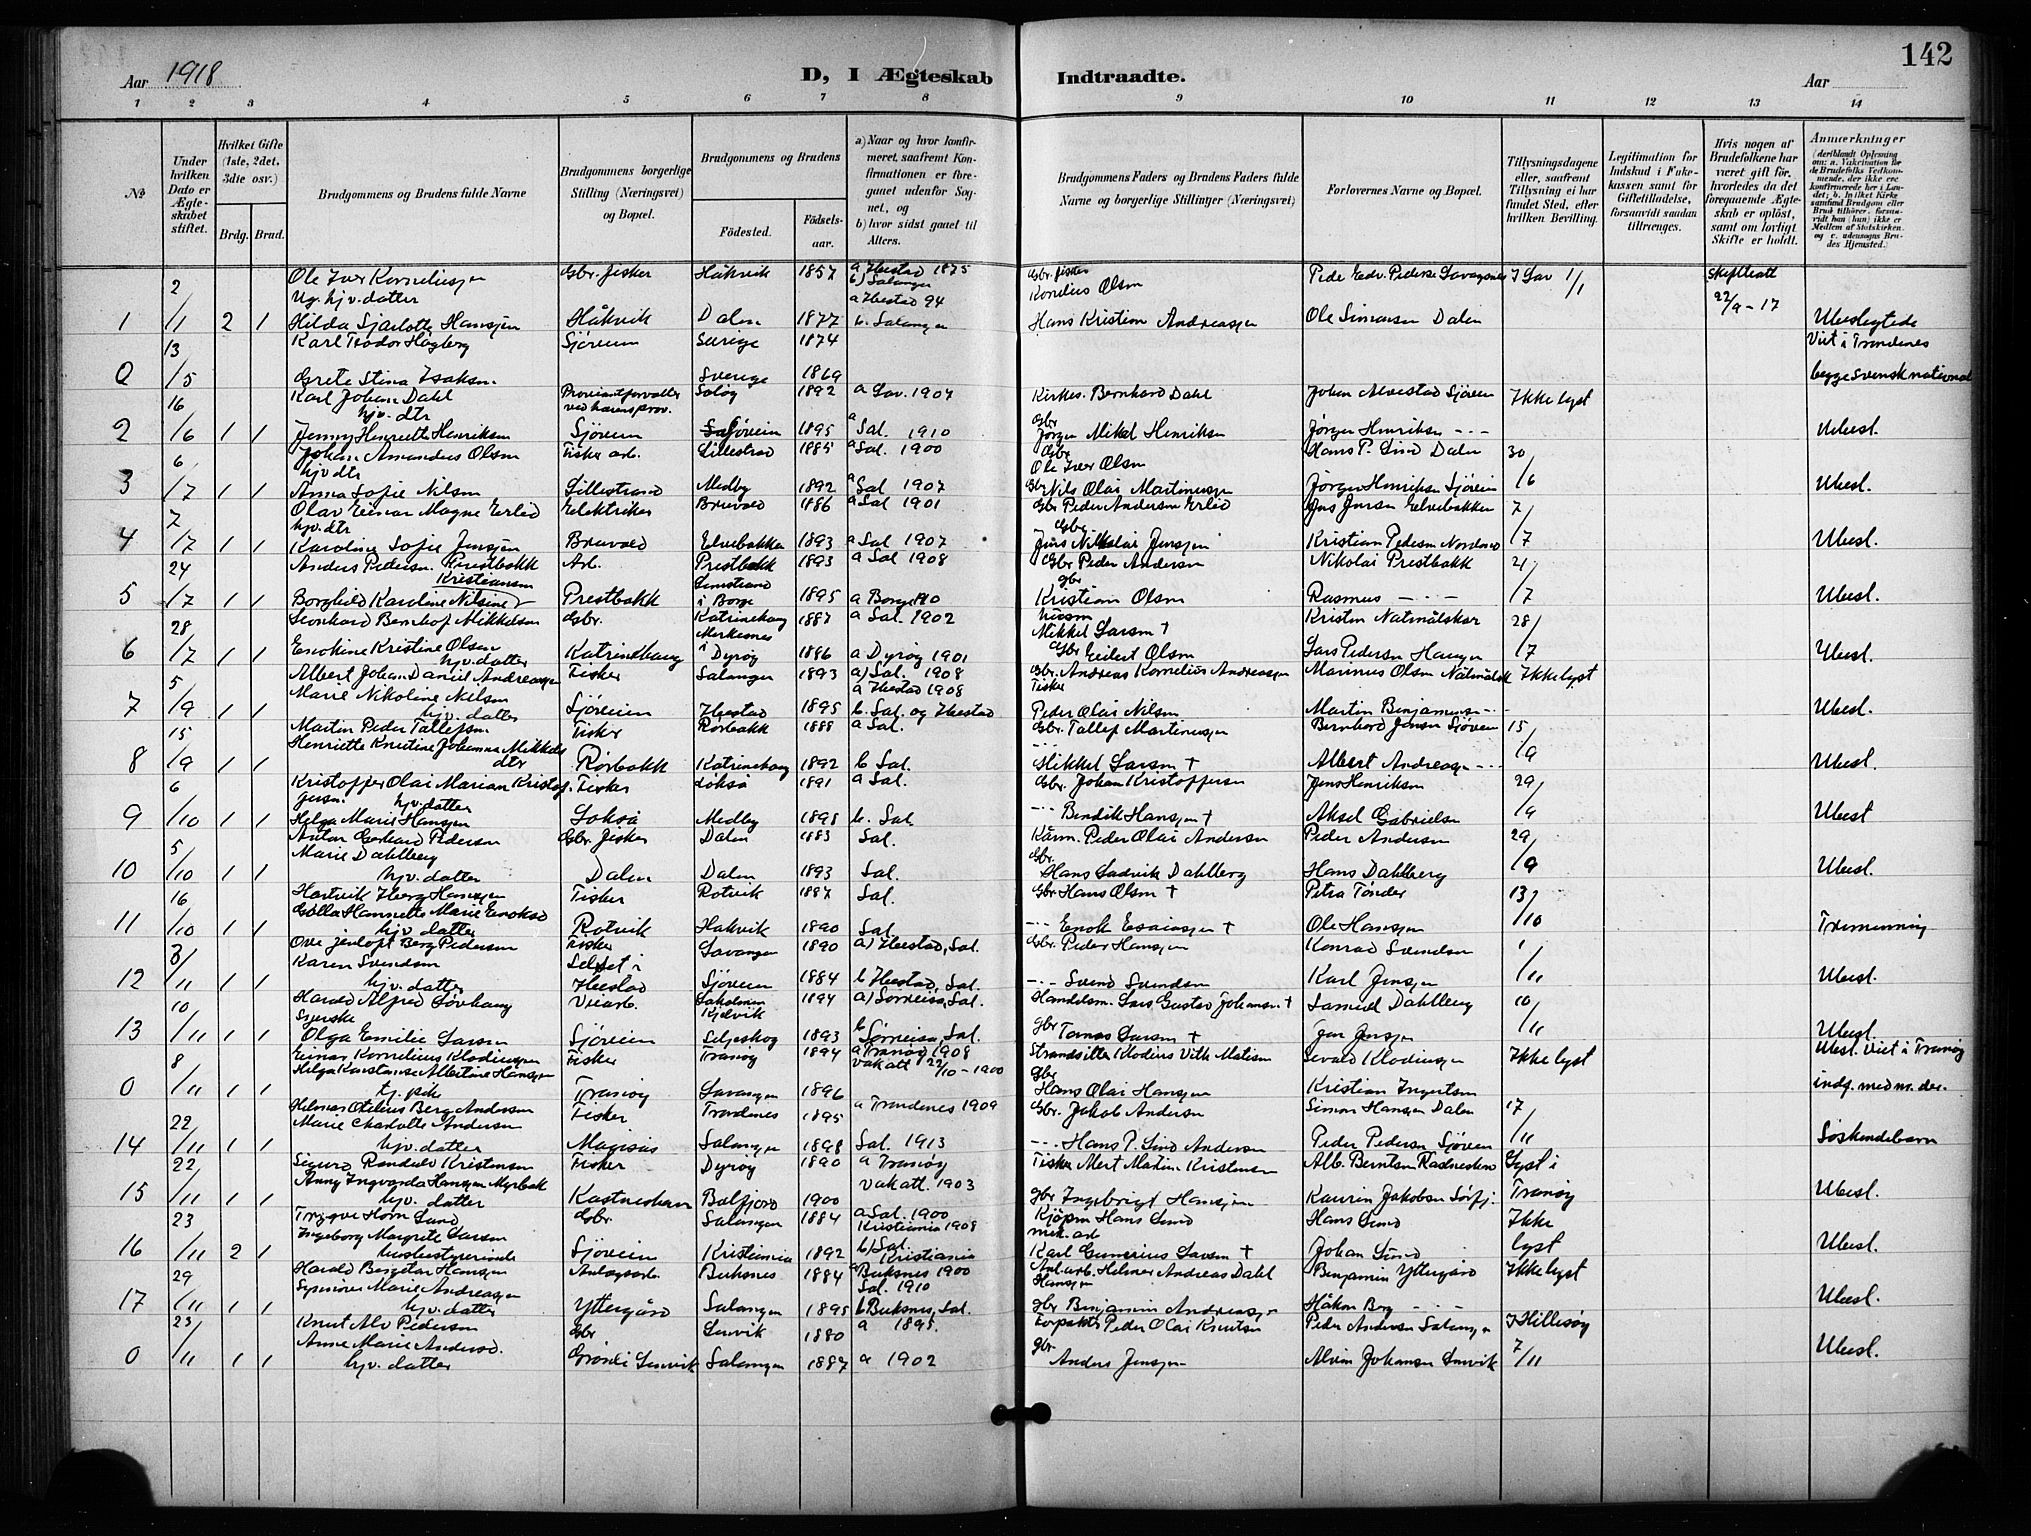 142
Aar 1918
D, I Ægteskab Indtraadte.
Aar
1 2 3 4 5 6 7 8 9 10 11 12 13 14
№
Under hvilken Dato er Ægteskabet stiftet.
Hvilket Gifte (1ste, 2det, 3die osv.)
Brdg. Brud.
Brudgommens og Brudens fulde Navne
Brudgommens borgerlige Stilling (Næringsvei) og Bopæl.
Brudgommens og Brudens
Födested.
Födselsaar.
a) Naar og hvor konfirmeret, saafremt Konfirmationen er foregaaet udenfor Sognet, og
b) hvor sidst gaaet til Alters.
Brudgommens Faders og Brudens Faders fulde Navne og borgerlige Stillinger (Næringsvei)
Forlovernes Navne og Bopæl.
Tillysningsdagene eller, saafremt Tillysning ei har fundet Sted, efter hvilken Bevilling.
Legitimation for Indskud i Enkekassen samt for Giftetilladelse, forsaavidt saadan tiltrænges.
Hvis nogen af Brudefolkene har været gift før, hvorledes da det foregaaende Ægteskab er oplöst, samt om lovligt Skifte er holdt.
Anmærkninger
Ole Iver Korneliussen Gbr. fisker Håkvik 1857 a Ibestad 1875 Gbr. fisker Kornelius Olsen I Sav 1/1 Skifteatt 22/9-17
1 2/1 2 1 Ug. hjv. datter Hilda Sjarlotte Hanssen Håkvik Dalen 1877 a Ibestad 94 b. Salangen Hans Kristian Andreassen Ole Simonsen Dalen Ubeslegtede
Karl Teodor Högberg Sjøveien Sverige 1874 Viet i Trondenes
0 13/5 Grete Stina Isaksen Sverige 1869 begge svensk national
Karl Johan Dahl Proviantforvalter 1892 a Lav. 1907 Kirkes. Bernhard Dahl Johan Alvestad Sjøveien Ikke lyst
2 16/6 1 1 hjv. dtr Jenny Henriette Henriksen Sjøveien Sjøveien 1895 a Sal. 1910 Gbr Jørgen Mikal Henriksen Jørgen Henriksen - - - Ubesl.
Johan Amandus Olsen Fisker arb. Lillestrand 1885 a Sal. 1900 Gbr Ole Iver Olsen Hans P. Lind Dalen 30
3 6/7 1 1 hjv dtr Anna Sofie Nilsen Lillestrand Medby 1892 a Sal 1907 Gbr Nils Olai Martinussen Jørgen Henriksen Sjøveien /6 Ubesl.
Olav Einar Magne Erlid Elektriker Bruvold 1886 a Sal 1901 Gbr Peder Andersen Erlid Jens Jensen Elvebakken 7
4 7/7 1 1 hjv. dtr Karoline Sofie Jenssen Bruvold Elvebakken 1893 a Sal 1907 Gbr. Jens Nikolai Jenssen Kristian Pedersen /7 Ubesl.
Anders Pedersen Prestbakk Arb. Prestbakk 1893 a Sal 1908 Gbr Peder Andersen Nikolai Prestbakk 21
5 24/7 1 1 Borghild Karoline Nilsine Kristiansen Prestbakk i Borge 1895 a Borge 1910 gbr Kristian Olsen Rasmus - - - /7 Ubesl.
Leonhard Bernhof Mikkelsen Gbr. Katrinehaug 1887 a Sal. 1902 Mikkel Larsen † 28
6 28/7 1 1 Enokine Kristine Olsen hjv. datter Katrinehaug i Dyrøy 1886 a Dyrøy 1901 Gbr Eilert Olsen Lars Pedersen /7 Ubesl.
Albert Johan Daniel Andreassen Fisker Salangen 1893 a) Sal. 1908 Gbr. Andreas Kornelius Andreassen Marinus Olsen Ikke lyst
7 5/9 1 1 Marie Nikoline Nilsen hjv. datter Sjøveien Ibestad 1895 a Ibestad 1908 b. Sal. og Ibestad Fisker Peder Olai Nilsen Martin Benjaminsen - - Ubesl.
Martin Peder Tallefsen Fisker Rørbakk 1888 a Sal. Gbr. Tallef Martinussen Bernhard Jensen Sjøveien 15
8 15/9 1 1 Henriette Kristine Johanna Mikkelsdtr Rørbakk Katrinehaug 1892 b Sal. - - - Mikkel Larsen † Albert Andreassen - - - /9 Ubesl.
Kristoffer Olai Marian Kristoffersen Fisker Løksa 1891 a Sal. Gbr. Johan Kristoffersen Jens Henriksen 29
9 6/10 1 1 hjv. datter Helga Marie Hanssen Løksa Medby 1898 b. Sal. - - - Bendik Hanssen † Aksel Gabrielsen /9 Ubesl
Anton Gerhard Pedersen Gbr. fisker Dalen 1883 Sal. Peder Olai Andersen Peder Andersen 29
10 5/10 1 1 Marie Dahlberg hjv. datter Dalen Dalen 1893 Sal. Gbr. Hans Ludvik Dahlberg Hans Dahlberg /9 Ubesl.
Hartvik Hanssen Fisker Rotvik 1887 Sal. Gbr Hans Olsen † Petra Tønder 13
11 16/10 1 1 hjv. datter Rotvik Håkvik 1890 Sal - - - Enok Esaiassen † Ole Hanssen /10 Tremenning
Ove Berg Pedersen Fisker Lavangen 1890 a) Ibestad, Sal. Gbr. Peder Hanssen Konrad Svendsen 1
12 3/11 1 1 Karen Svendsen hjv. datter Selset i Ibestad Sjøveien 1884 b Ibestad, Sal. - - - Svend Svendsen Karl Jenssen /11 Ubesl.
Harald Alfred Løvhaug Veiarb. 1894 a) Sørreisa, Sal. Handelsm. Lars Gustav Johansen † Samuel Dahlberg 10
13 10/11 1 1 Olga Emilie Larsen Sjøveien Seljeskog 1893 b Sørreisa, Sal. gbr Tomas Larsen † /11 Ubesl.
Einar Kornelius Klodiussen Fisker Tranøy 1894 a Tranøy 1908 Strandsitter Klodius Vitk Matisen Sevald Klodiussen Ikke lyst Ubesl. Viet i Tranøy
0 8/11 1 1 Helga Konstanse Albertine Hanssen tj. pike Tranøy Lavangen 1896 Vak att 22/10-1900 Gbr Hans Olai Hanssen Kristian Ingertsen indg. med m. der.
Hilmar Otelius Berg Andersen Fisker Trondenes 1895 a Trondenes 1909 Gbr. Jakob Andersen Simon Hanssen Dalen 17
14 22/11 1 1 Marie Charlotte Andersen hjv. datter Salangen 1898 Sal. 1913 - - - Hans P. Lind Andersen Peder Pedersen Sjøveien /11 Søskendebarn
Sigurd Randulv Kristensen Fisker Dyrøy 1890 a Tranøy Fisker Mert Martin Kristensen Alb. Berntsen Lyst i
15 22/11 1 1 Anny Ingvarda Hanssen Myrbak hjv. datter Kastneshavn Balsfjord 1900 Vakatt. 1903 gbr Ingebrigt Hanssen Kaurin Jakobsen Sørfj. Tranøy Ubesl.
Trygve Horn Lund Gbr. Salangen 1884 a Sal. 1900 Kristiania 1908 Kjøpm Hans Lund Hans Lund Ikke
16 23/11 2 1 Ingeborg Margrete Larsen husbestyrerinde Sjøveien Kristiania 1892 b) Sal. Kristiania mek. arb Karl Gunerius Larsen † Johan Lund lyst Ubesl.
Harald Bergeton Hanssen Anlægsarb. Buksnes 1884 a Buksnes 1900 Anl. arb. Helmer Andreas Dahl Hanssen Benjamin Yttergård Ikke lyst
17 29/11 1 1 Synnøve Marie Andreassen hjv. datter Yttergård Salangen 1895 Sal. 1910 b Buksnes, Sal. gbr Benjamin Andreassen Håkon Berg - - - Ubesl.
Knut Alv Pedersen Gbr Lenvik 1880 a 1895. Forpakter Peder Olai Knutsen Peder Andersen Salangen I Hillesøy
0 23/11 1 1 Anne Marie Andersd. hjv. datter Grønli Lenvik Salangen 1887 a 1902 gbr Anders Jenssen Alvin Johansen Lenvik 7/11 Ubesl.